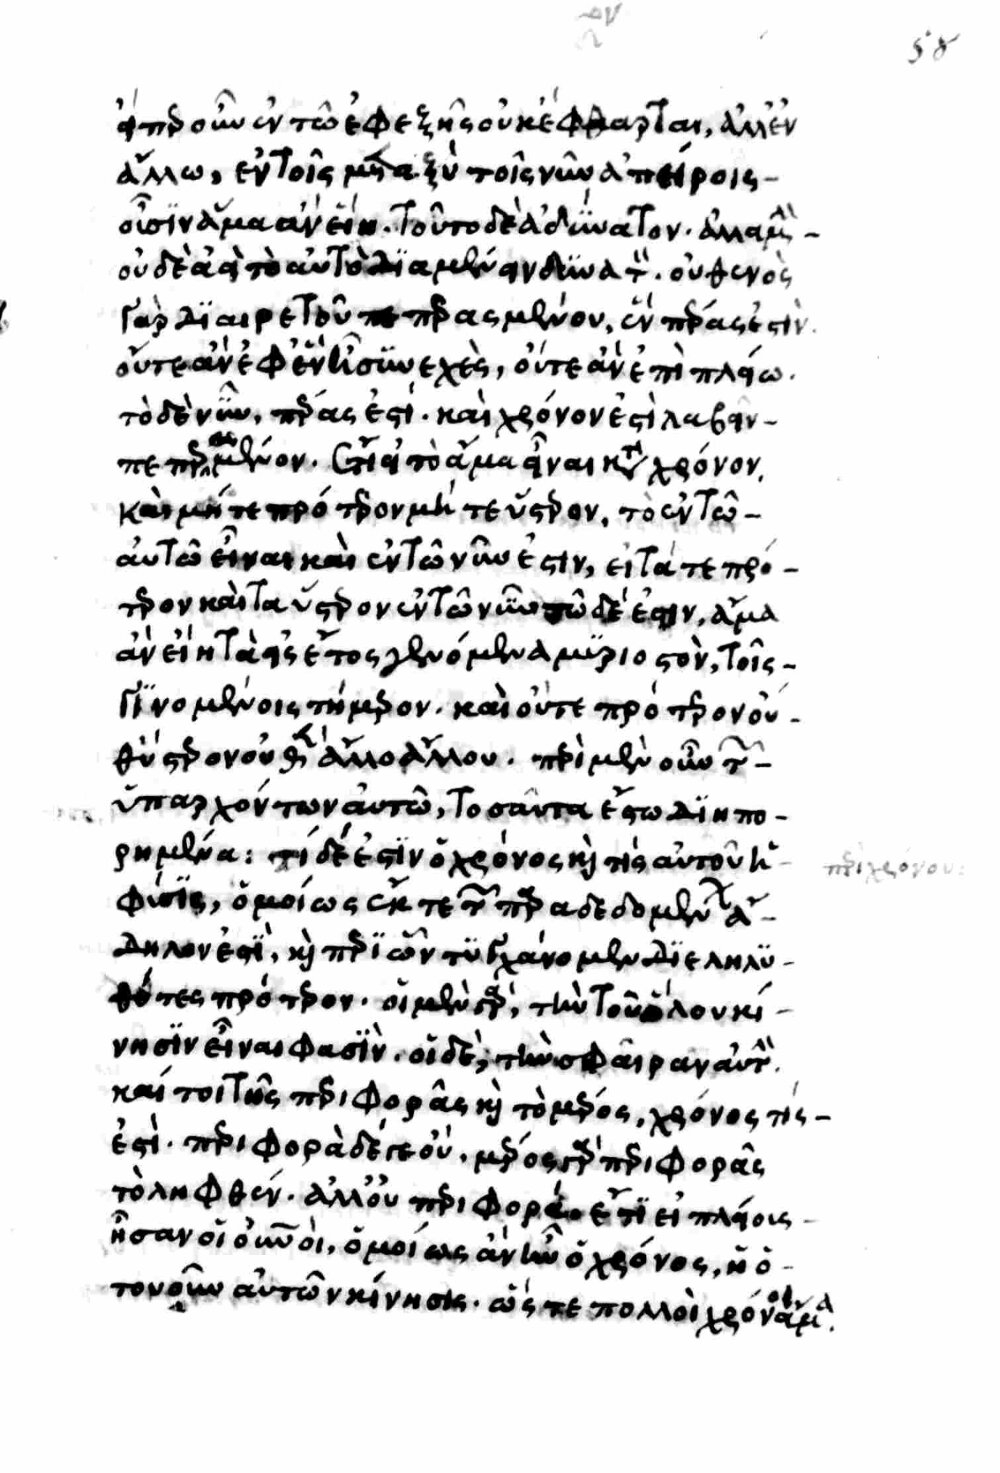 εἴπερ οὖν ἐν τῷ ἐφεξῆς οὐκ ἔφθαρται, ἀλλ' ἐν
ἄλλῳ, ἐν τοῖς μεταξὺ τοῖς νῦν ἀπείροις
οὖσιν ἅμα ἂν εἴη. τοῦτο δὲ ἀδύνατον. ἀλλὰ μὴν
οὐδὲ ἀεὶ τὸ αὐτὸ διαμένειν δυνατόν. οὐθενὸς
γὰρ διαιρετοῦ πεπερασμένου, ἓν πέρας ἐστὶν.
οὔτε ἂν ἐφ' ἓν ᾖ συνεχὲς, οὔτε ἂν ἐπὶ πλείω.
τὸ δὲ νῦν, πέρας ἐστί. καὶ χρόνον ἐστὶ λαβεῖν
πεπερασμένον. ἔτι εἰ τὸ ἅμα εἶναι κατὰ χρόνον,
καὶ μήτε πρότερον μήτε ὕστερον, τὸ ἐν τῷ
αὐτῷ εἶναι καὶ ἐν τῷ νῦν ἐστιν, εἰ τά τε πρό
τερον καὶ τὰ ὕστερον ἐν τῷ νῦν τῷδέ ἐστιν, ἅμα
ἂν εἴη τὰ εἰς ἔτος γενόμενα μυριοστὸν, τοῖς
γινομένοις τήμερον. καὶ οὔτε πρότερον οὔ
θ' ὕστερον οὐθὲν ἄλλο ἄλλου. περὶ μὲν οὖν τῶν
ὑπαρχόντων αὐτῷ, τοσαῦτα ἔστω διηπο
ρημένα: τί δέ ἐστιν ὁ χρόνος καὶ τίς αὐτοῦ ἡ
φύσις, ὁμοίως ἔκ τε τῶν παραδεδομένων ἄ
δηλόν ἐστι, καὶ περὶ ὧν τυγχάνομεν διεληλυ
θότες πρότερον. οἱ μὲν γὰρ, τὴν τοῦ ὅλου κί
νησιν εἶναι φασὶν. οἱ δὲ, τὴν σφαῖραν αὐτήν.
καίτοι τῆς περιφορᾶς καὶ τὸ μέρος, χρόνος τίς
ἐστὶ. περιφορὰ δέ γε οὔ. μέρος γὰρ περιφορᾶς
τὸ ληφθέν. ἀλλ' οὐ περιφορά. ἔτι εἰ πλείους
ἦσαν οἱ οὐρανοὶ, ὁμοίως ἂν ἦν ὁ χρόνος, ἡ ὁ
τουοῦν αὐτῶν κίνησις. ὥστε πολλοὶ χρόνοι ἅμα.
περὶ χρόνου: